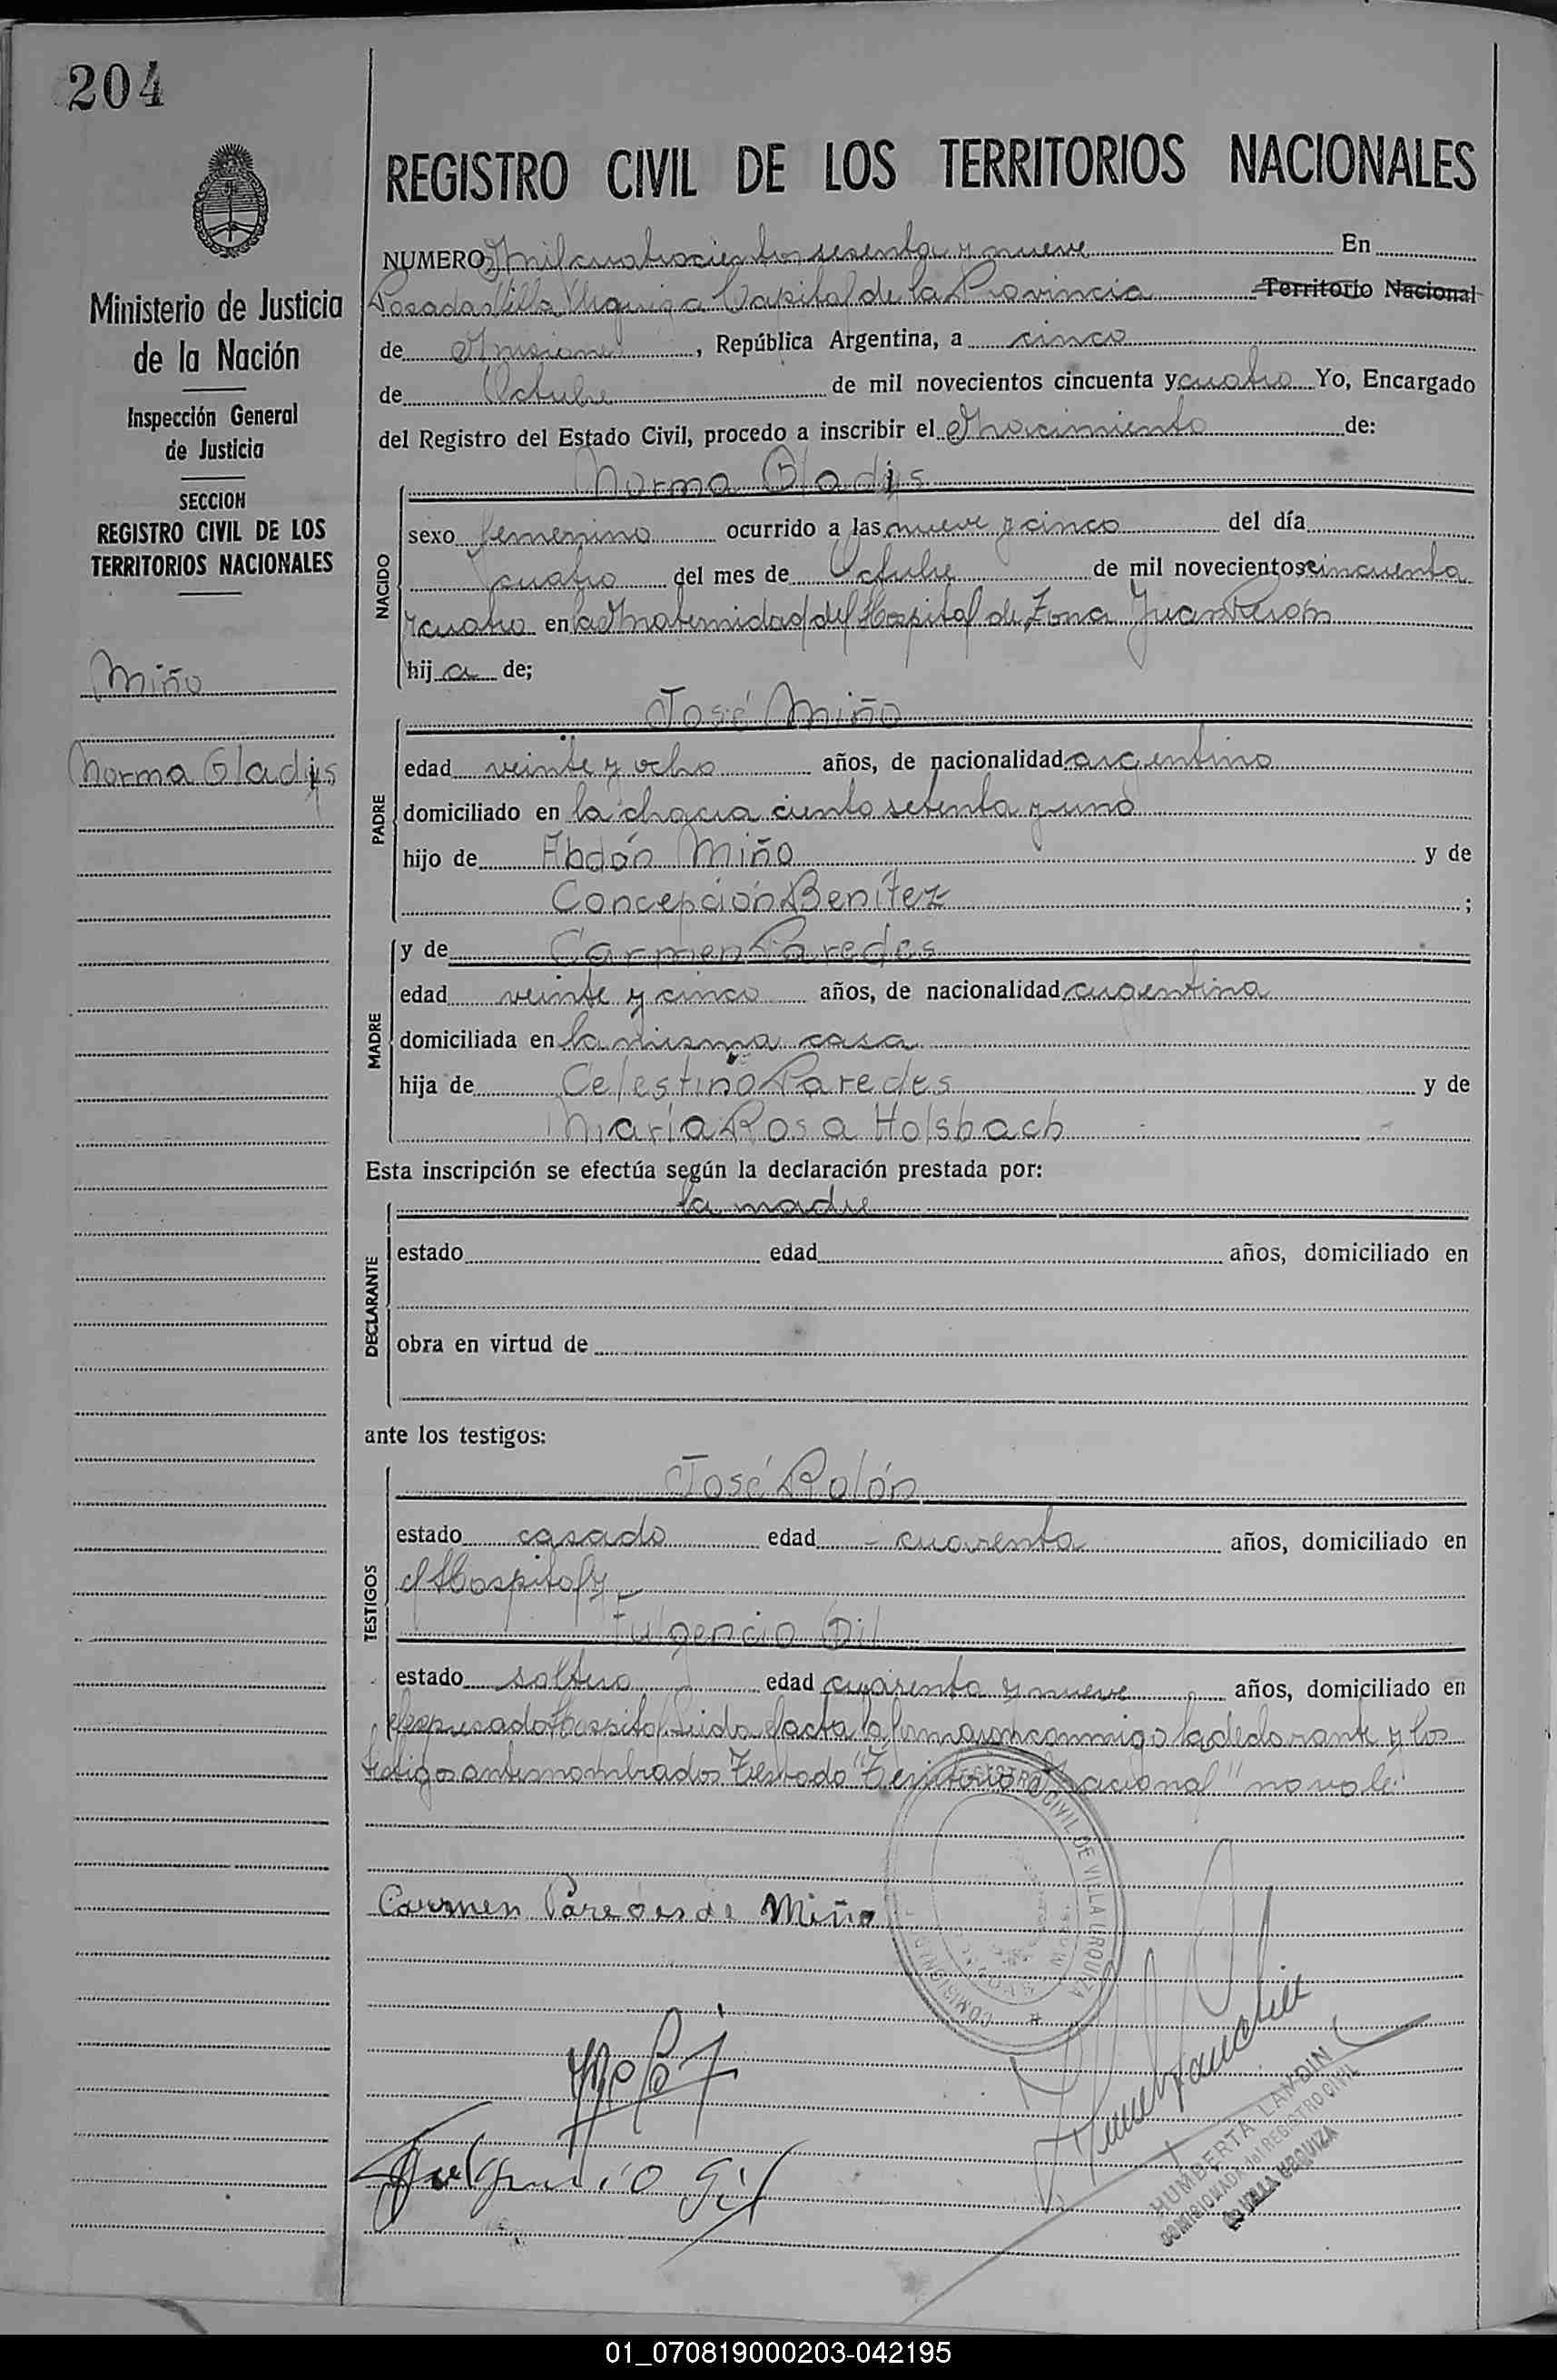 204
REGISTRO CIVIL DE LOS TERRITORIOS NACIONALES
Ministerio de Justicia
de la Nación
Inspección General
de Justicia
SECCION
REGISTRO CIVIL DE LOS
TERRITORIOS NACIONALES
Miño
Norma Gladys
NUMERO mil cuatrocientos sesenta y nueve En
Posadas Villa Urquiza Capital de la Provincia Territorio Nacional
de Misiones, República Argentina, a cinco
de Octubre de mil novecientos cincuenta y cuatro Yo, Encargado
del Registro del Estado Civil, procedo a inscribir el Nacimiento de:
NACIDO
Norma Gladys
sexo femenino ocurrido a las nueve y cinco del día
cuatro del mes de Octubre de mil novecientos cincuenta
y cuatro en la Maternidad del Hospital de Zona Juan Perón
hija de;
PADRE
José Miño
edad veinte y ocho años, de nacionalidad argentino
domiciliado en la chacra ciento setenta y uno
hijo de Abdón Miño y de
Concepción Benítez ;
MADRE
y de Carmen Paredes
edad veinte y cinco años, de nacionalidad argentina
domiciliada en la misma casa
hija de Celestino Paredes y de
María Rosa Holsbach
Esta inscripción se efectúa según la declaración prestada por:
DECLARANTE
la madre
estado edad años, domiciliado en
obra en virtud de
ante los testigos:
TESTIGOS
José Rolón
estado casado edad cuarenta años, domiciliado en
el Hospital y
Fulgencio Gil
estado soltero edad cuarenta y nueve años, domiciliado en
el expresado Hospital. Leida el acta la firmaron conmigo la declarante y los
testigos antes nombrados Testado "Territorio Nacional" no vale
Carmen Paredes de Miño
Fulgencio Gil
REGISTRO CIVIL DE VILLA URQUIZA
HUMBERTA LANDIN
COMISIONADA del REGISTRO CIVIL
de VILLA URQUIZA
01_070819000203-042195